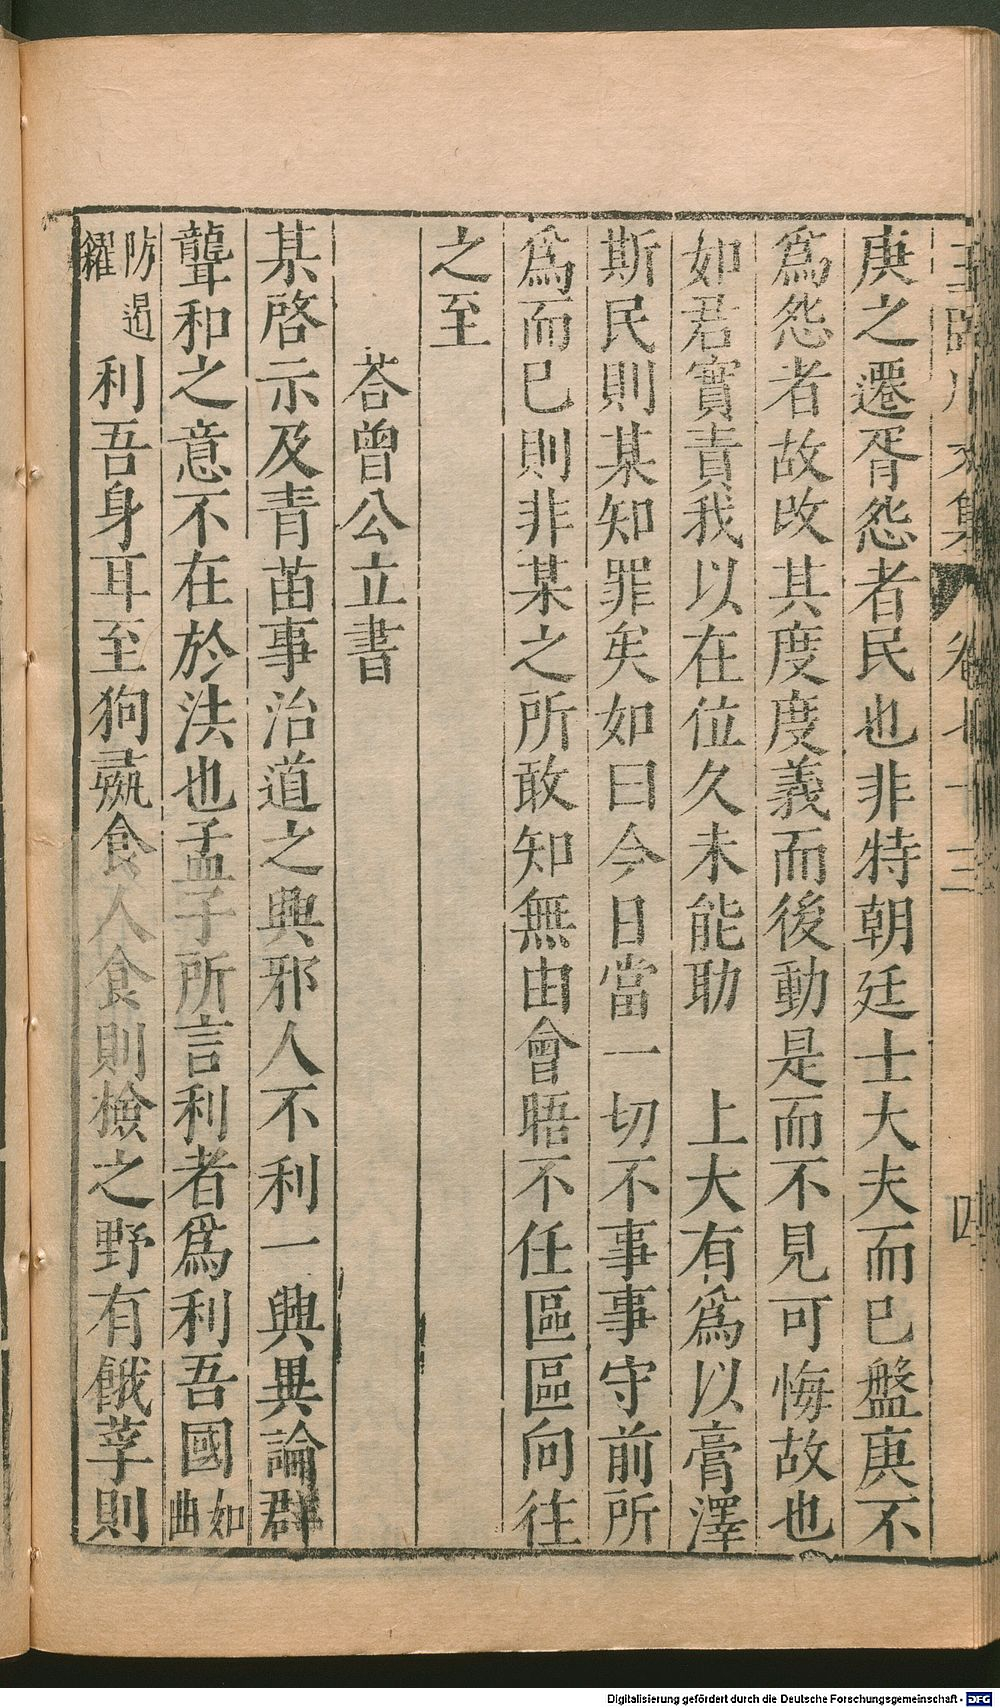 王臨川文集 卷七十三 四
庚之遷胥怨者民也非特朝廷士大夫而已盤庚不
爲怨者故改其度度義而後動是而不見可悔故也
如君實責我以在位久未能助 上大有爲以膏澤
斯民則某知罪矣如曰今日當一切不事事守前所
爲而已則非某之所敢知無由會晤不任區區向往
之至
荅曾公立書
某啓示及青苗事治道之興邪人不利一興異論群
聾和之意不在於法也孟子所言利者爲利吾國如曲
防遏糴利吾身耳至狗彘食人食則檢之野有餓莩則
Digitalisierung gefördert durch die Deutsche Forschungsgemeinschaft - DFG